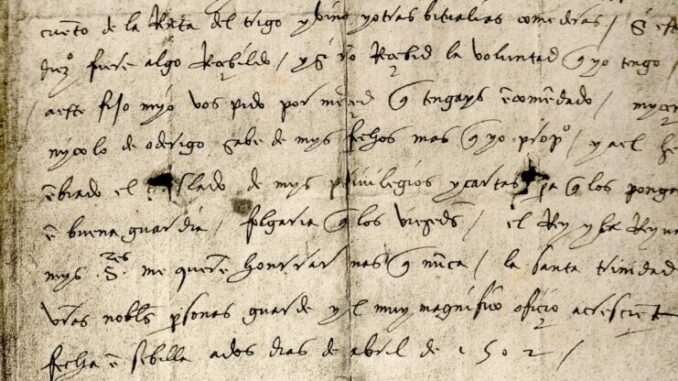 cuento de la Rẽta del trigo y vino y otras bitualias comederas / Si este
diezº fuere algo Rçebildo / y Si no Rçebid la voluntad q yo tengo /
a este fijo myo vos pido por merçed q tengays ẽcomẽdado / myçer
nycolo de oderigo sabe de mys fechos mas q yo propº / y a el he
ẽbiado el slado de mys privilegios y cartas pa q los ponga
ẽ buena guardia / folgaria q los viesedes / el Rey y la Reyna
mys Sres me quierẽ honrrar mas q nũca / la santa trinidad
vras nobles personas guarde y el muy magnifico ofiçio acresciente
fecha ẽ sebilla a dos dias de abril de 1502 /